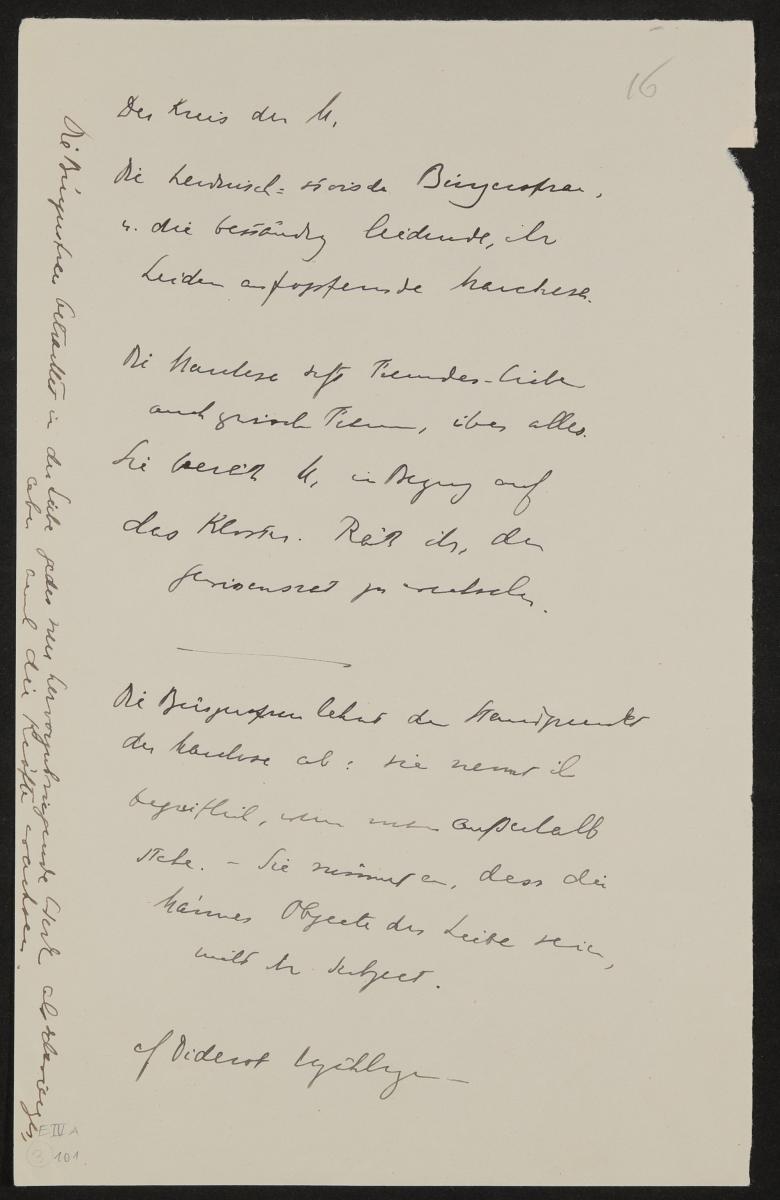 16
Der Kreis der M.
Die heroisch-stoische Bürgersfrau,
u. die beständig leidende, ihr
Leiden aufopfernde Marchesa.
Die Marchesa setzt Freundes-Liebe
auch zwischen Frauen, über alles.
Sie berät M. in Bezug auf
das Kloster. Rät ihr, den
Gewissensrat zu wechseln.
Die Bürgersfrau lehnt den Standpunkt
der Marchesa ab: sie nennt ihn
begreiflich, wenn man außerhalb
stehe. – Sie nimmt an, dass die
Männer Objecte der Liebe seien,
nicht ihr Subject.
cf Diderot
Die Bürgersfrau betrachtet in der Liebe jedes neu hervorzubringende Werk als schwieriges,
aber auch die Kräfte wachsen.
E IV A
3 101